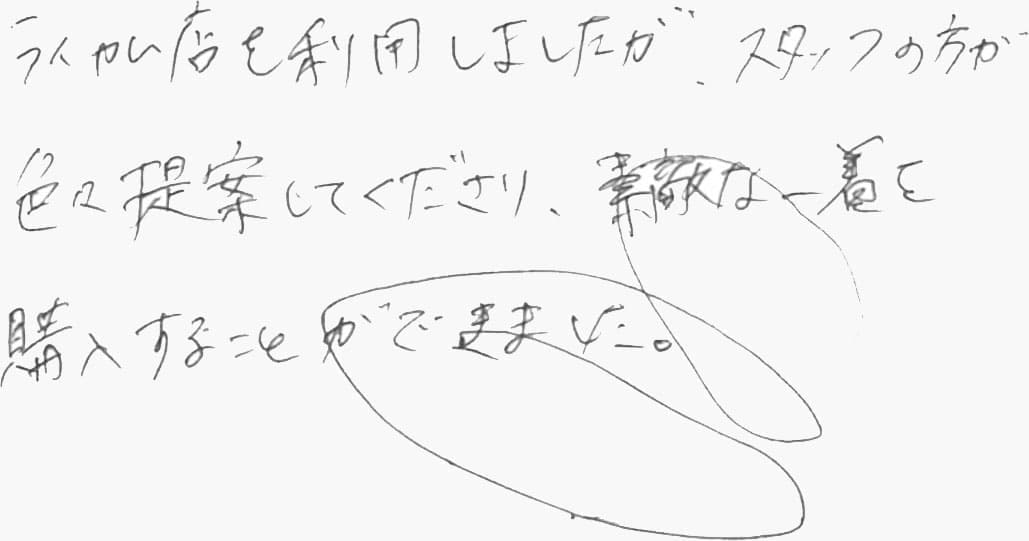 ライカム店を利用しましたが、スタッフの方が
色々提案してくださり、素敵な一着を
購入することができました。